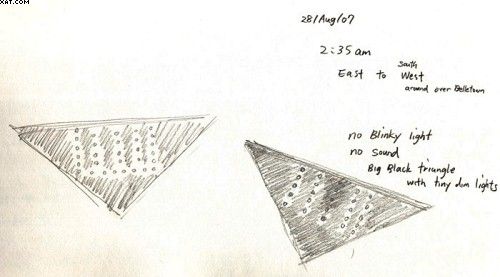 XAT.COM
28/Aug/07
2:35am
South
East to West
around over Belltown
no Blinky light
no sound
Big Black triangle
with tiny dim lights